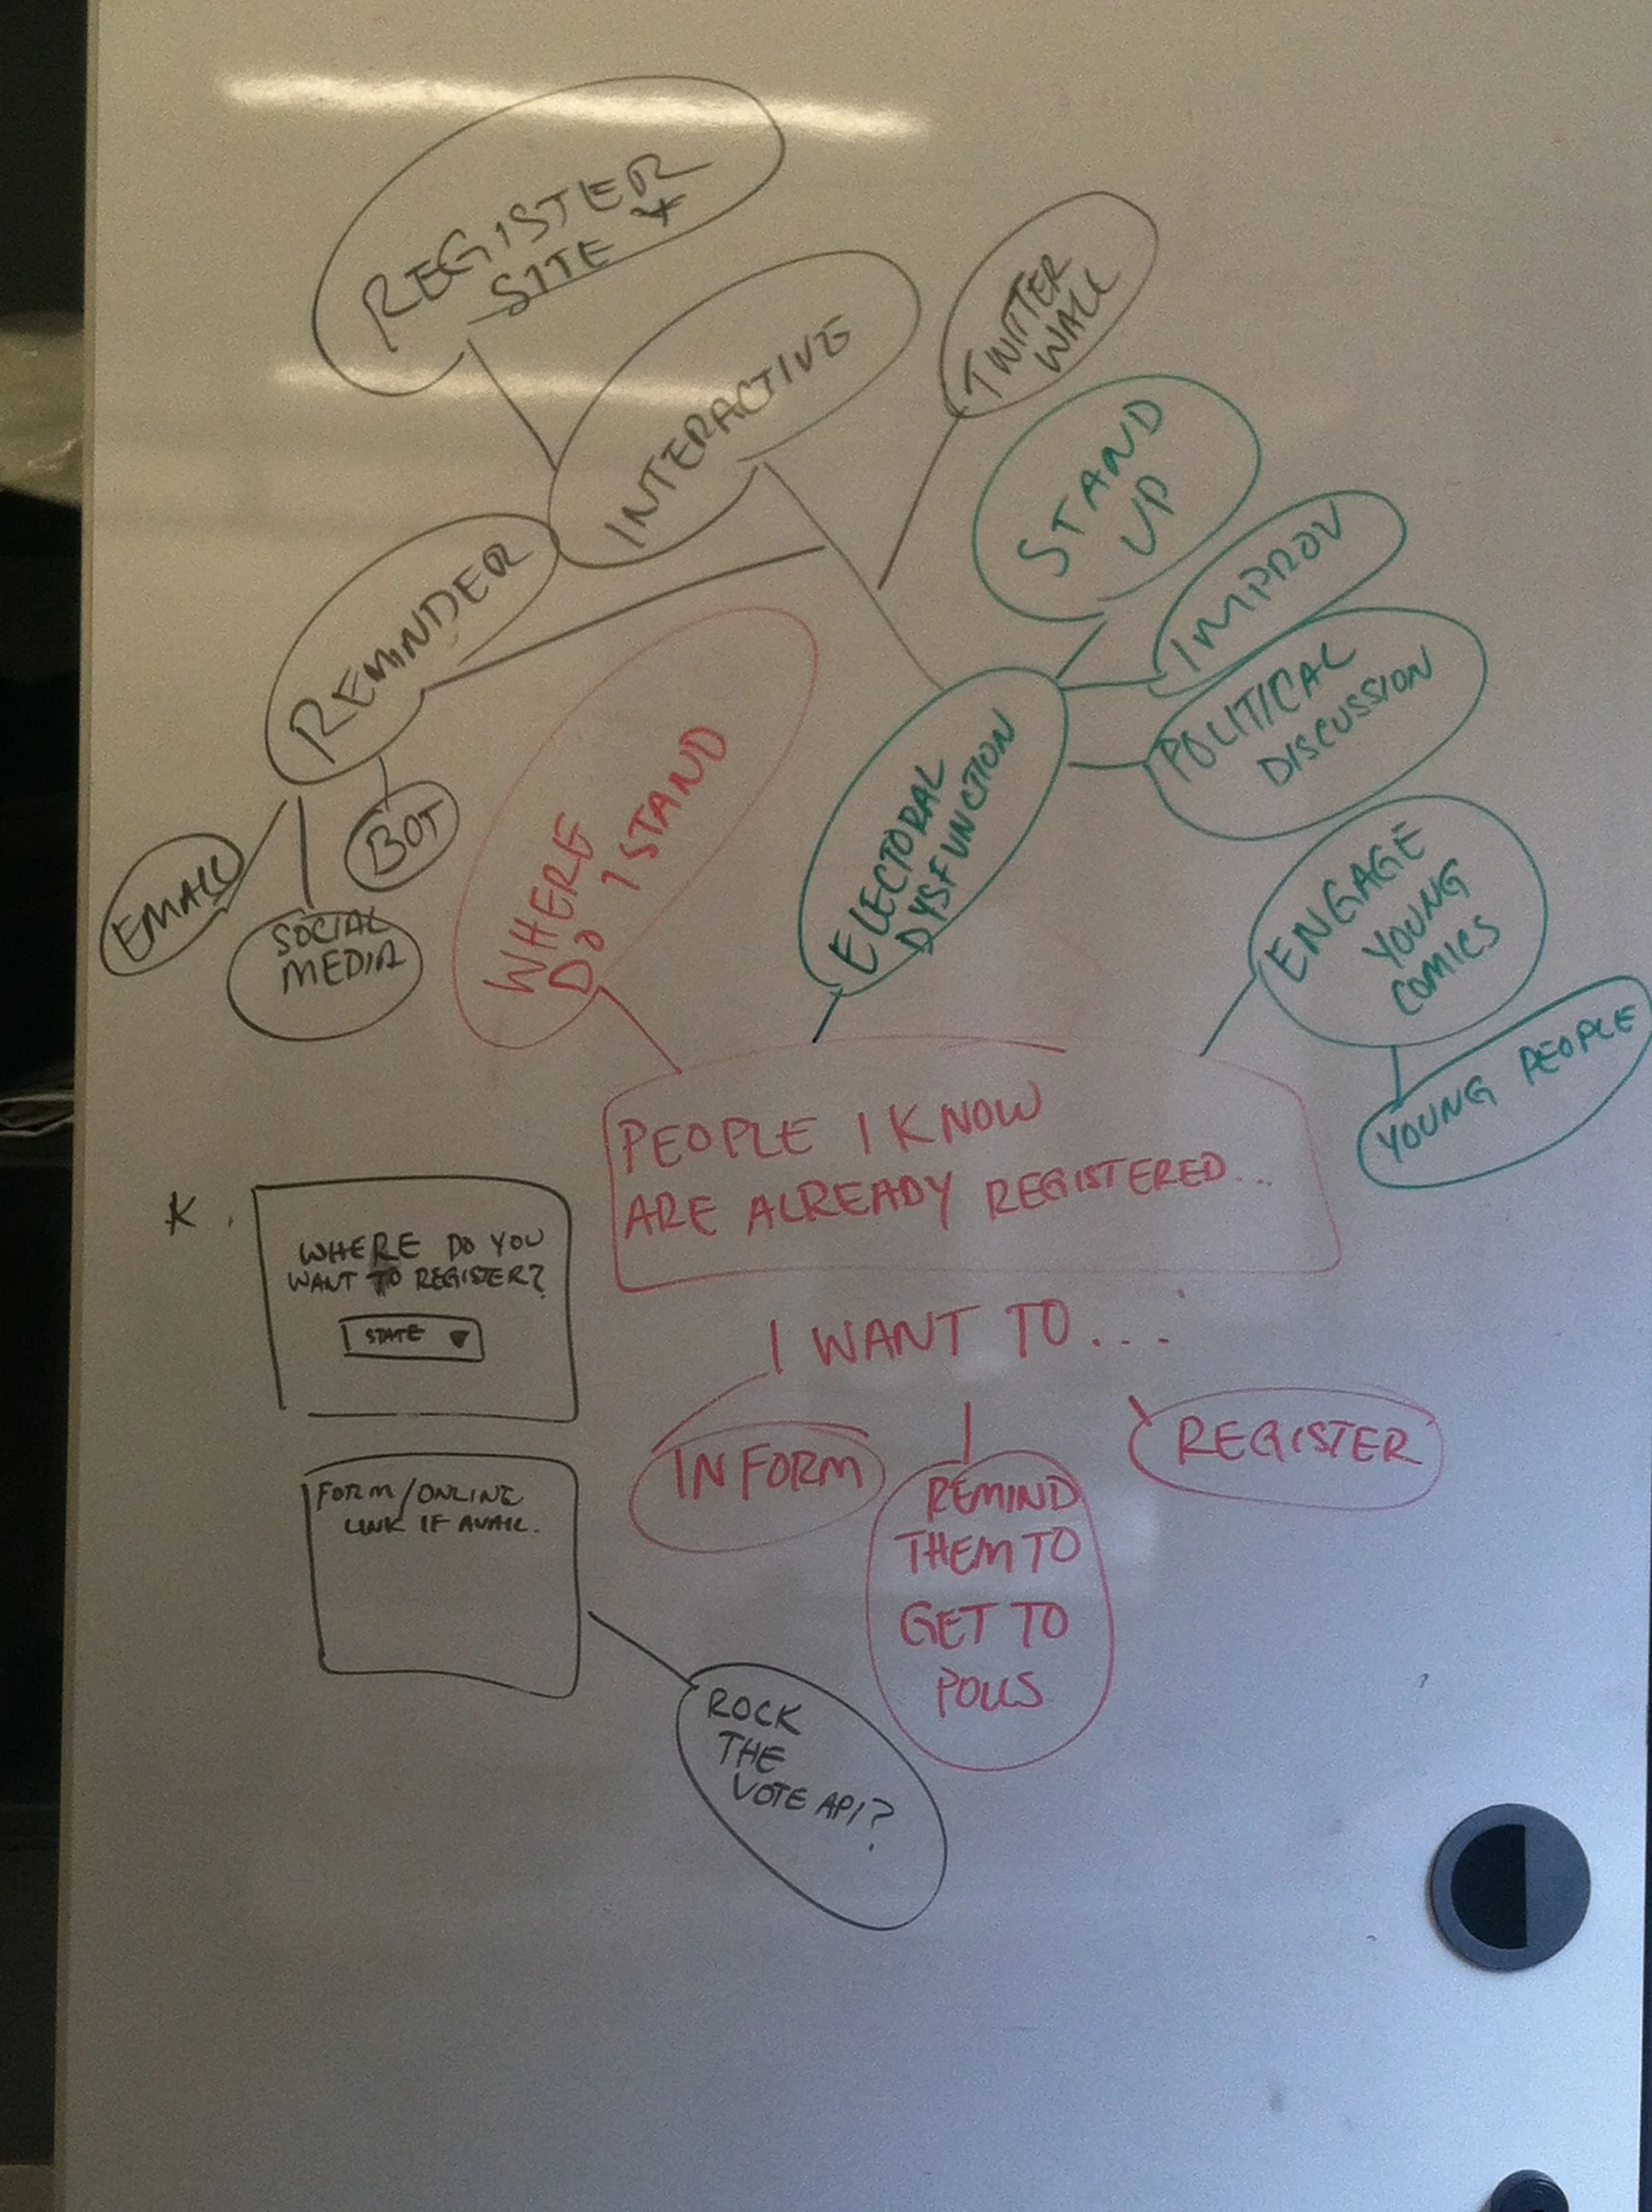 REGISTER
SITE *
INTERACTIVE
TWITTER
WALL
STAND
UP
IMPROV
POLITICAL
DISCUSSION
REMINDER
EMAIL
SOCIAL
MEDIA
BOT
WHERE
DO I STAND
ELECTORAL
DYSFUNCTION
ENGAGE
YOUNG
COMICS
YOUNG PEOPLE
PEOPLE I KNOW
ARE ALREADY REGISTERED...
I WANT TO...
INFORM
REMIND
THEM TO
GET TO
POLLS
REGISTER
*.
WHERE DO YOU
WANT TO REGISTER?
STATE
FORM/ONLINE
LINK IF AVAIL.
ROCK
THE
VOTE API?